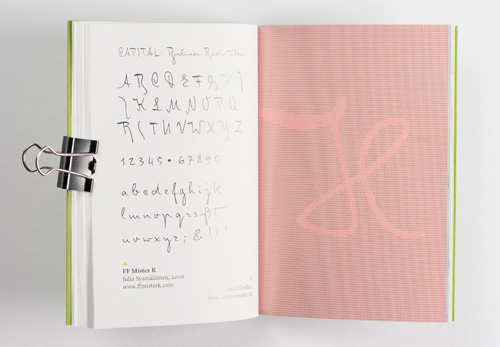 CAPITAL: Berliner Buchstaben
ABCDEFGHI
JKLMNOPQ
RSTUVWXYZ
12345 • 67890
abcdefghijk
lmnopqrsßt
uvwxyz; & !?"
FF Mister K
Julia Sysmäläinen, 2008
www.ffmisterk.com
K